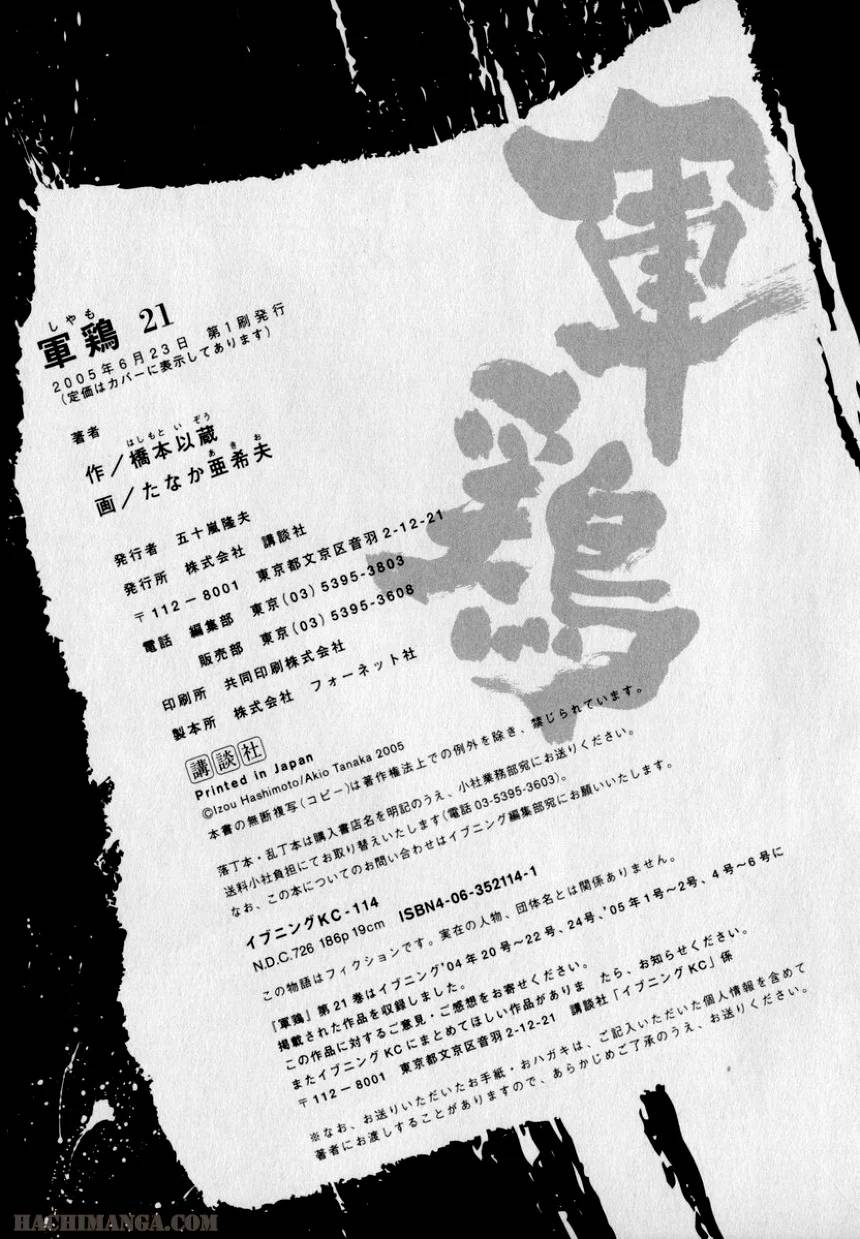 軍鶏
しゃも
軍鶏 21
2005年6月23日 第1刷発行
(定価はカバーに表示してあります)
著者
はしもと い ぞう
作/橋本以蔵
あ き お
画/たなか亜希夫
発行者 五十嵐隆夫
発行所 株式会社 講談社
〒112-8001 東京都文京区音羽2-12-21
電話 編集部 東京(03)5395-3803
販売部 東京(03)5395-3608
印刷所 共同印刷株式会社
製本所 株式会社 フォーネット社
講談社
Printed in Japan
©Izou Hashimoto/Akio Tanaka 2005
本書の無断複写(コピー)は著作権法上での例外を除き、禁じられています。
落丁本・乱丁本は購入書店名を明記のうえ、小社業務部宛にお送りください。
送料小社負担にてお取り替えいたします(電話03-5395-3603)。
なお、この本についてのお問い合わせはイブニング編集部宛にお願いいたします。
イブニングKC-114
N.D.C.726 186p 19cm ISBN4-06-352114-1
この物語はフィクションです。実在の人物、団体名とは関係ありません。
「軍鶏」第21巻はイブニング'04年20号〜22号、24号、'05年1号〜2号、4号〜6号に
掲載された作品を収録しました。
この作品に対するご意見・ご感想をお寄せください。
またイブニングKCにまとめてほしい作品がありま たら、お知らせください。
〒112-8001 東京都文京区音羽2-12-21 講談社「イブニングKC」係
※なお、お送りいただいたお手紙・おハガキは、ご記入いただいた個人情報を含めて
著者にお渡しすることがありますので、あらかじめご了承のうえ、お送りください。
HACHIMANGA.COM